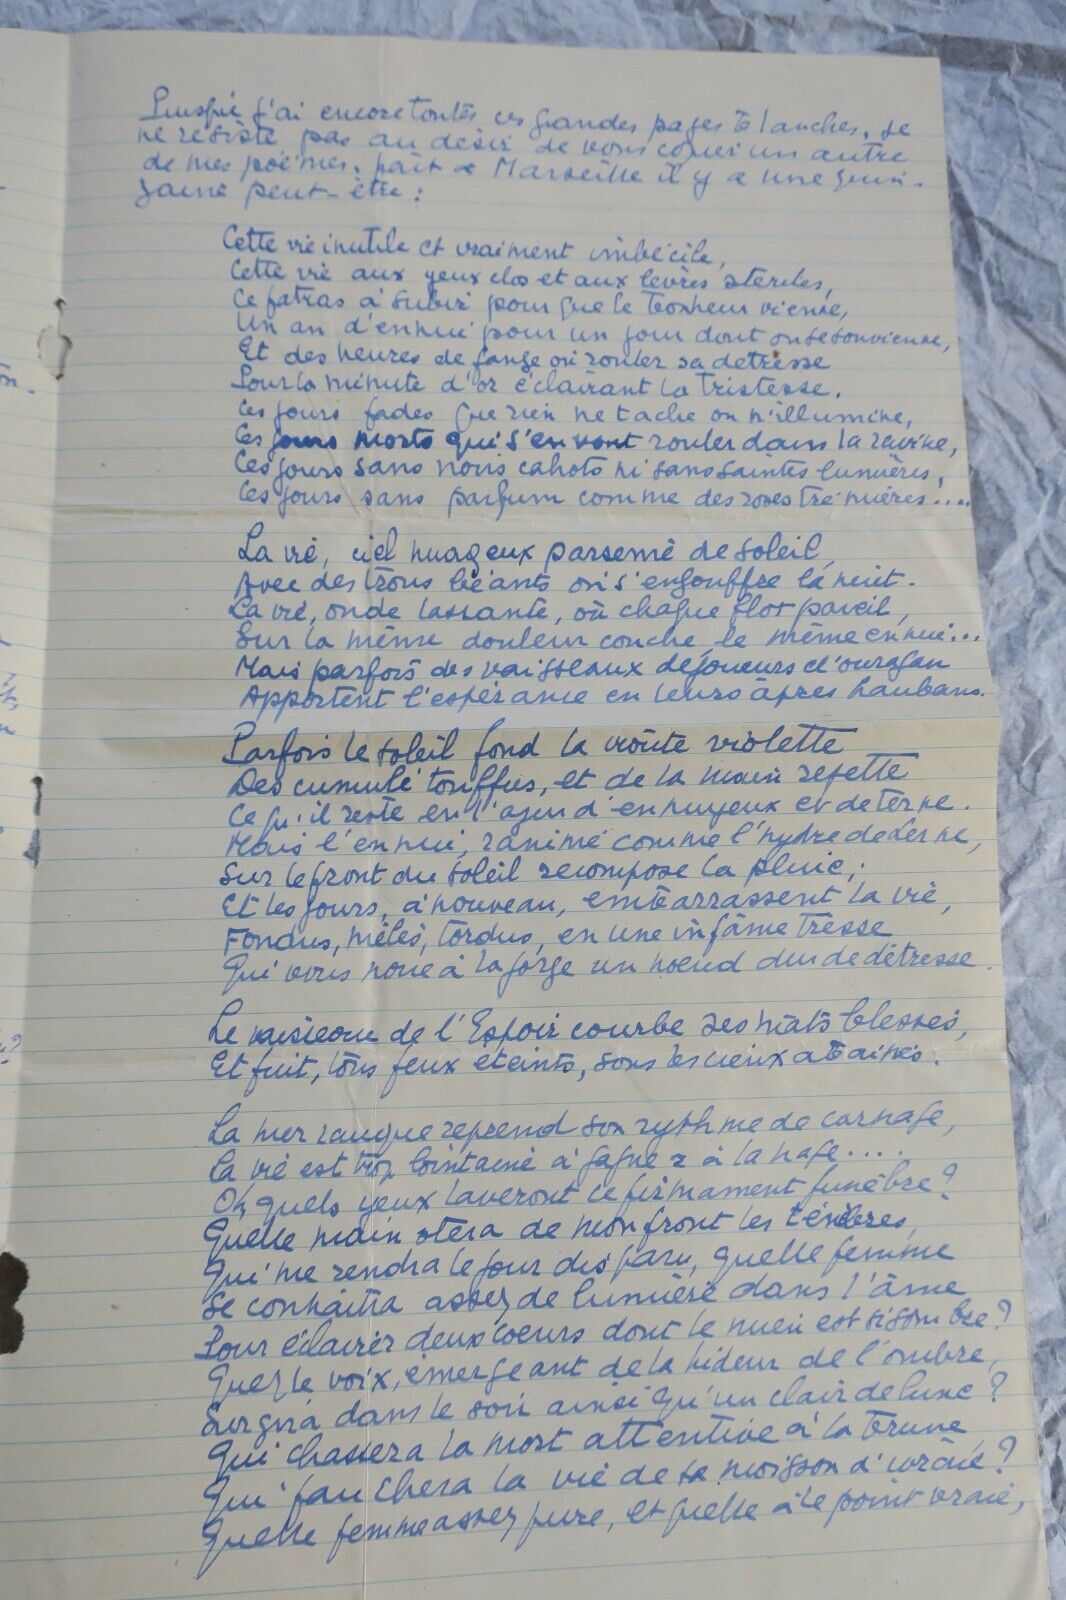 Puisque j'ai encore toutes ces grandes pages blanches, je
ne résiste pas au désir de vous copier un autre
de mes poèmes, fait à Marseille il y a une quin-
zaine peut-être :
Cette vie inutile et vraiment imbécile,
Cette vie aux yeux clos et aux lèvres stériles,
Ce fatras à subir pour que le bonheur vienne,
Un an d'ennui pour un jour dont on se souvienne,
Et des heures de fange où rouler sa détresse
Pour la minute d'or éclairant la tristesse.
Ces jours fades que rien ne tache ou n'illumine,
Ces jours morts qui s'en vont rouler dans la ravine,
Ces jours sans noirs cahots ni sans saintes lumières,
Ces jours sans parfum comme des roses trémières....
La vie, ciel nuageux parsemé de soleil,
Avec des trous béants où s'engouffre la nuit.
La vie, onde lassante, où chaque flot pareil,
Sur la même douleur couche le même ennui...
Mais parfois des vaisseaux déjoueurs d'ouragan
Apportent l'espérance en leurs âpres haubans.
Parfois le soleil fond la voûte violette
Des cumuli touffus, et de la main rejette
Ce qu'il reste en l'azur d'ennuyeux et de terne.
Mais l'ennui, ranimé comme l'hydre de Lerne,
Sur le front du soleil recompose la pluie;
Et les jours, à nouveau, embarrassent la vie,
Fondus, mêlés, tordus, en une infâme tresse
Qui vous noue à la gorge un noeud dur de détresse.
Le vaisseau de l'Espoir courbe ses mâts blessés,
Et fuit, tous feux éteints, sous les cieux abaissés.
La mer rauque reprend son rythme de carnage,
La vie est trop lointaine à gagner à la nage....
Oh quels yeux laveront ce firmament funèbre?
Quelle main ôtera de mon front les ténèbres,
Qui me rendra le jour disparu, quelle femme
Se connaîtra assez de lumière dans l'âme
Pour éclairer deux coeurs dont le nuit est si sombre?
Quelle voix, émergeant de la hideur de l'ombre,
Surgira dans le soir ainsi qu'un clair de lune?
Qui chassera la mort attentive à la brune,
Qui fauchera la vie de sa moisson d'ivraie?
Quelle femme assez pure, et quelle à le point vraie,